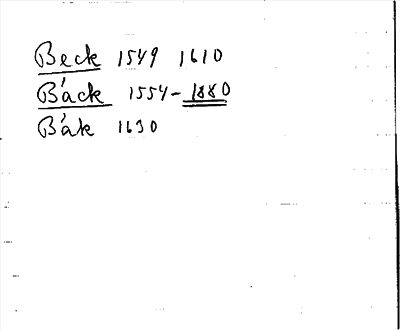 Beck 1549 1610
Báck 1554-1880
Bák 1630